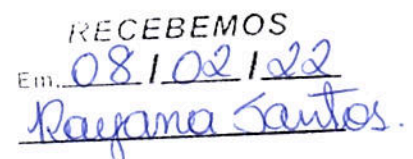 RECEBEMOS
Em. 08 / 02 / 22
Rayana Santos.